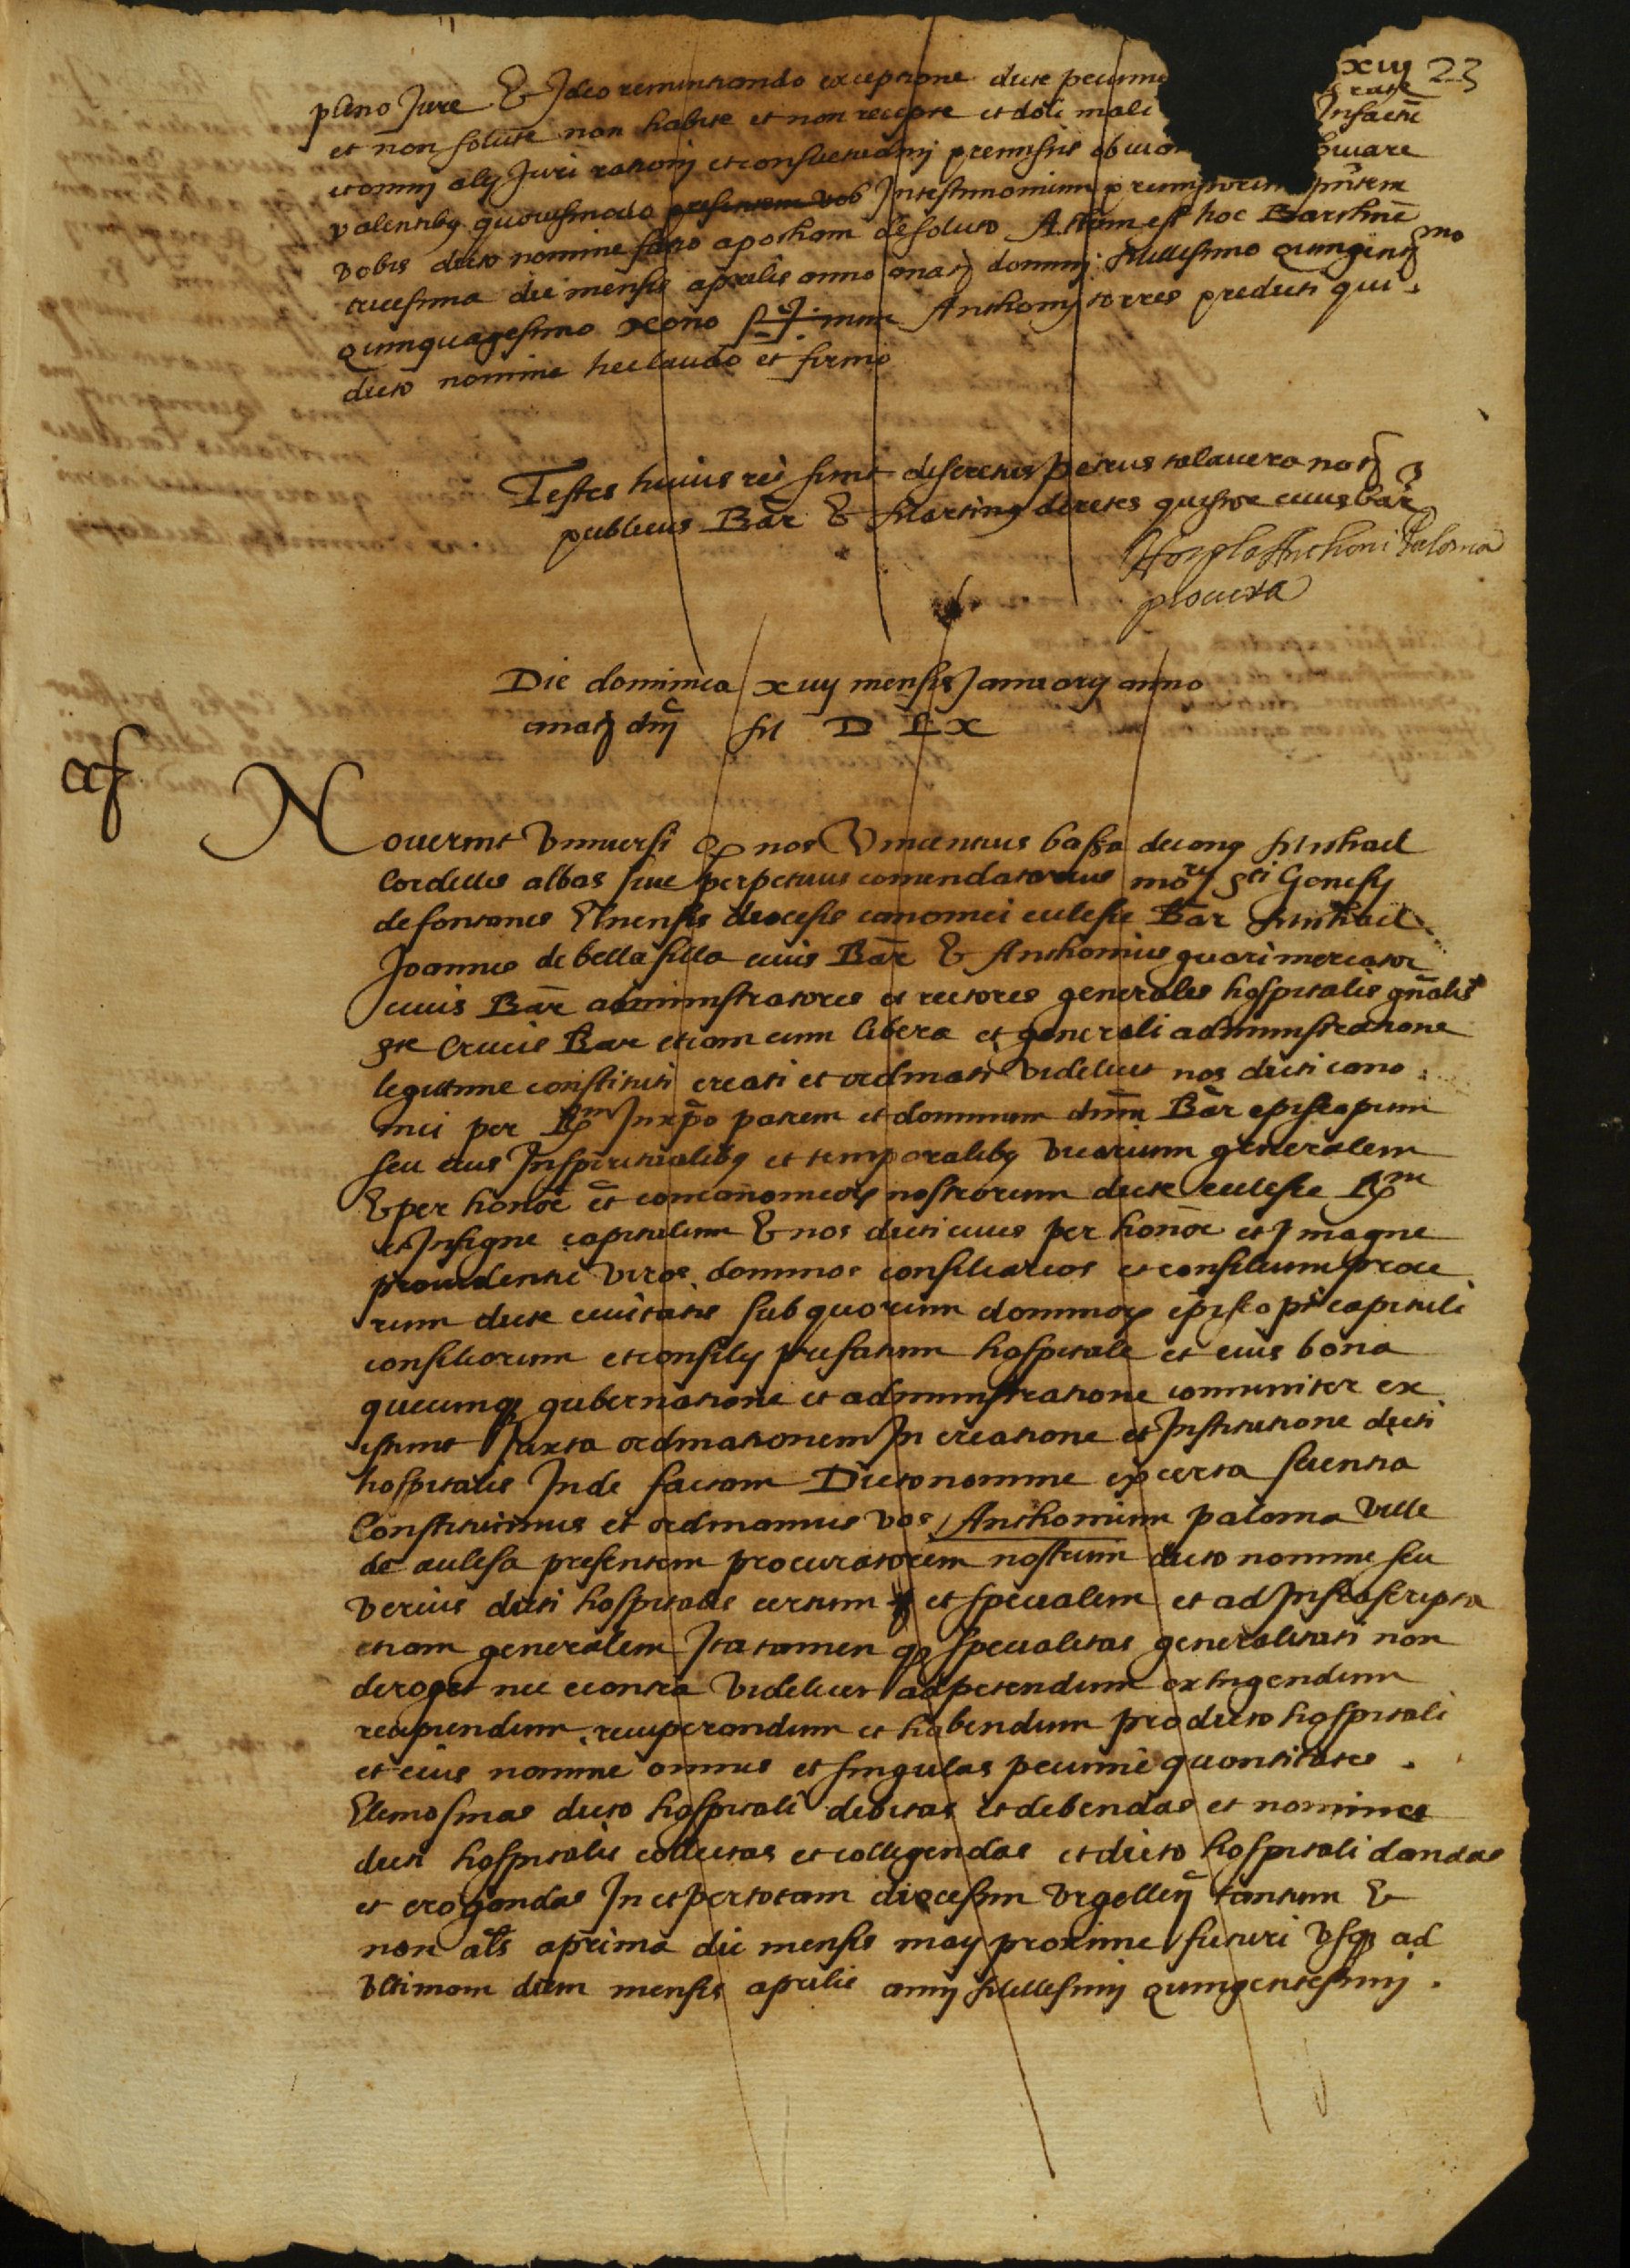 xiij 23
pleno Jure & Ideo renuntiando exceptione dicte pecunie
et non solute non habite et non recepte et doli mali Infactũ
et omnj alij Juri rationj et consuetudinj premissis obuiare
valentibꝯ quouismodo presentem vob In testimonium premissorum pñtem
vobis dicto nomine facio apocham de soluto Actum est hoc Barchinẽ
tricesima die mensis aprilis anno anatꝭ dominj Millesimo quingenꝭmo
quinquagesimo nono Sig+num Anthonij torres predicti qui
dicto nomine hec laudo et firmo
Testes huius rei sunt discretus petrus talauera notꝭ
publicus Bar̃ & Martinꝯ deretes questor ciuis bar̃
Anthoni Paloma
Die dominica xiiij mensis Januarij anno
anatꝭ dñj M D LX
af
Nouerint Vniuersi ꝙ nos Vincentius bassa decanꝯ Michael
Cordelles abbas siue perpetuus comendatarius mõrij sti Genesij
de fontanes Elnensis diocesis canonici eclesie Bar̃ Michael
Joannes de bellafilla ciuis Bar̃ & Anthonius guori mercator
ciuis Bar̃ administratores et rectores generales hospitalis gñalis
ste Crucis Bar etiam cum libera et generali administratione
legittime constituti creati et ordinati videlicet nos dicti cano
nici per Rm In xp̃o patrem et dominum dñm Bar̃ episcopum
seu eius Inspiritualibꝯ et temporalibꝯ vicarium generalem
& per honõr et concanonicoꝝ nostrorum dicte eclesie Rm
et Insigne capitulum & nos dicti ciues per honõr et magne
prouidentie viros dominos consiliarios et consilium proce
rum dicte ciuitatis sub quorum dominoꝝ episcopi capituli
consiliorum et consilij prefatum hospitale et eius bona
quecumqꝫ gubernatione et administratione comuniter ex
istunt Juxta ordinationem In creatione et Institutione dicti
hospitalis Inde factam Dicto nomine ex certa scientia
Constituimus et ordinamus vos Anthonium paloma ville
de aulesa presentem procuratorem nostrum dicto nomine seu
verius dicti hospitalis certum et specialem et ad Infrascripta
etiam generalem Ita tamen ꝙ specialitas generalitati non
deroget nec econtra videlicet ad petendum exhigendum
recipiendum recuperandum et habendum pro dicto hospitali
et eius nomine omnes et singulas pecunie quantitates
Elemosinas dicto hospitali debitas et debendas et nomine
dicti hospitalis collectas et colligendas et dicto hospitali dandas
et erogandas In et per totam diocesim vrgelleñ tantum &
non aĩs a prima die mensis maij proxime futuri vsqꝫ ad
vltimam diem mensis aprilis annj Millesimj quingentesimj